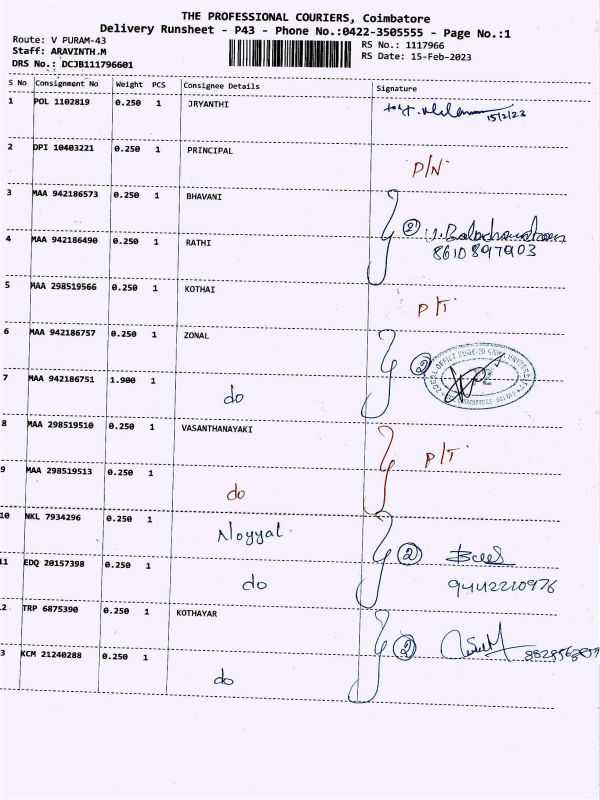 THE PROFESSIONAL COURIERS, Coimbatore
Delivery Runsheet - P43 - Phone No.:0422-3505555 - Page No.:1
Route: V PURAM-43
Staff: ARAVINTH.M
DRS No.: DCJB111796601
RS No.: 1117966
RS Date: 15-Feb-2023
S No Consignment No Weight PCS Consignee Details Signature
1 POL 1102819 0.250 1 JRYANTHI 15/2/23
2 DPI 10403221 0.250 1 PRINCIPAL P/N
3 MAA 942186573 0.250 1 BHAVANI
② V. Balachandran
4 MAA 942186490 0.250 1 RATHI 8610897903
5 MAA 298519566 0.250 1 KOTHAI P/T
6 MAA 942186757 0.250 1 ZONAL ②
7 MAA 942186751 1.900 1 do
8 MAA 298519510 0.250 1 VASANTHANAYAKI P/T
9 MAA 298519513 0.250 1 do
10 NKL 7934296 0.250 1 Noyyal ②
11 EDQ 20157398 0.250 1 do 9442210976
2 TRP 6875390 0.250 1 KOTHAYAR ②
3 KCM 21240288 0.250 1 do